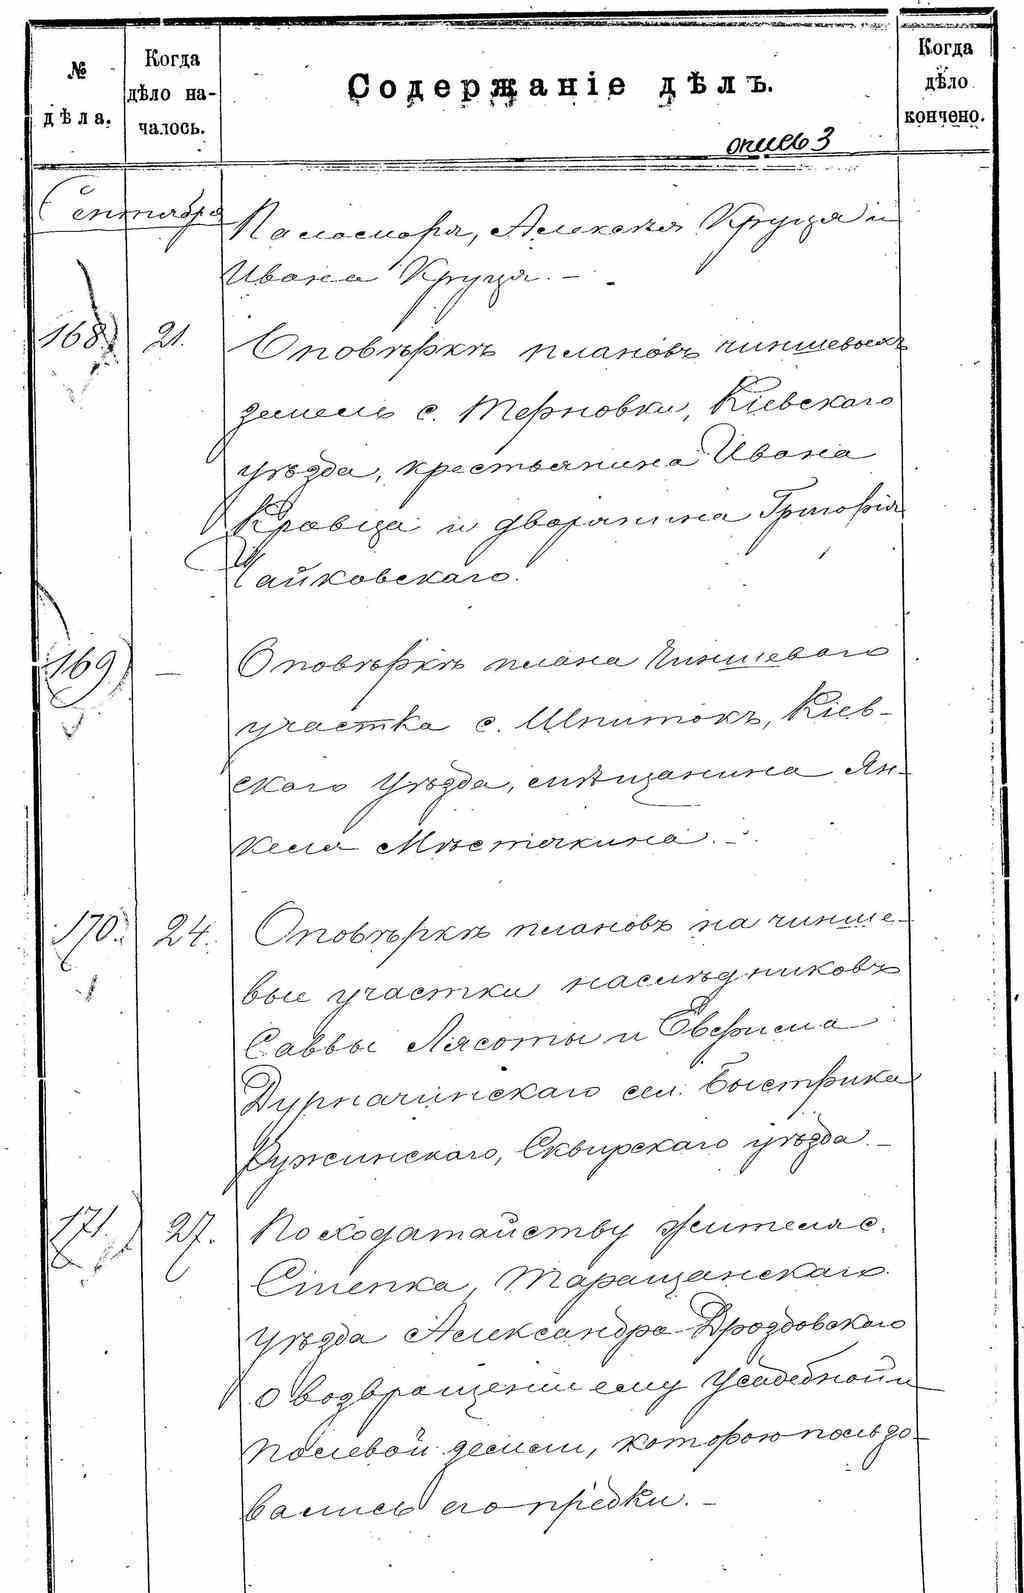 № дѣла.
Когда дѣло на-
чалось.
Содержаніе дѣлъ.
Когда дѣло кончено.
опись 3
Сентября
Паламаря, Алексѣя Круця и
Ивана Круця. –
168) 21. О повѣркѣ плановъ чиншевыхъ
земель с. Терновки, Кіевскаго
уѣзда, крестьянина Ивана
Кравца и дворянина Григорія
Чайковскаго.
169) — О повѣркѣ плана чиншеваго
участка с. Шпитокъ, Кіев-
скаго уѣзда, мѣщанина Ян-
келя Мѣстечкина. –
170. 24. О повѣркѣ плановъ на чинше-
вые участки наслѣдниковъ
Саввы Лясоты и Евфима
Дурначинскаго сел. Быстрика
Ружинскаго, Сквирскаго уѣзда. –
171. 27. По ходатайству жителя с.
Степка, Таращанскаго
уѣзда Александра Дроздовскаго
о возвращеніи ему усадебной и
полевой земли, которою пользо-
вались его предки. –